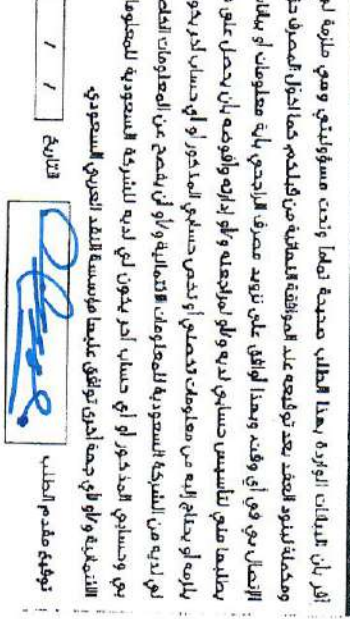 أقر بأن البيانات الواردة بهذا الطلب صحيحة تماماً وتحت مسؤوليتي وهي ملزمة لي
ومكملة لبنود العقد بعد توقيعه عند الموافقة النهائية من قبلكم، كما أخول المصرف
الإتصال بي في أي وقت. وبهذا أوافق على تزويد مصرف الراجحي بأية معلومات أو بيانات
يطلبها مني لتأسيس حسابي لديه و/أو لمراجعته و/أو إدارته وأفوضه بأن يحصل على
يلزمه أو يحتاج إليه من معلومات تخصني أو تخص حسابي المذكور أو أي حساب آخر يكون
لي لديه من الشركة السعودية للمعلومات الائتمانية و/أو أن يفصح عن المعلومات الخاصة
بي وحسابي المذكور أو أي حساب آخر يكون لي لديه للشركة السعودية للمعلومات
الائتمانية و/أو لأي جهة أخرى توافق عليها مؤسسة النقد العربي السعودي
توقيع مقدم الطلب التاريخ / /